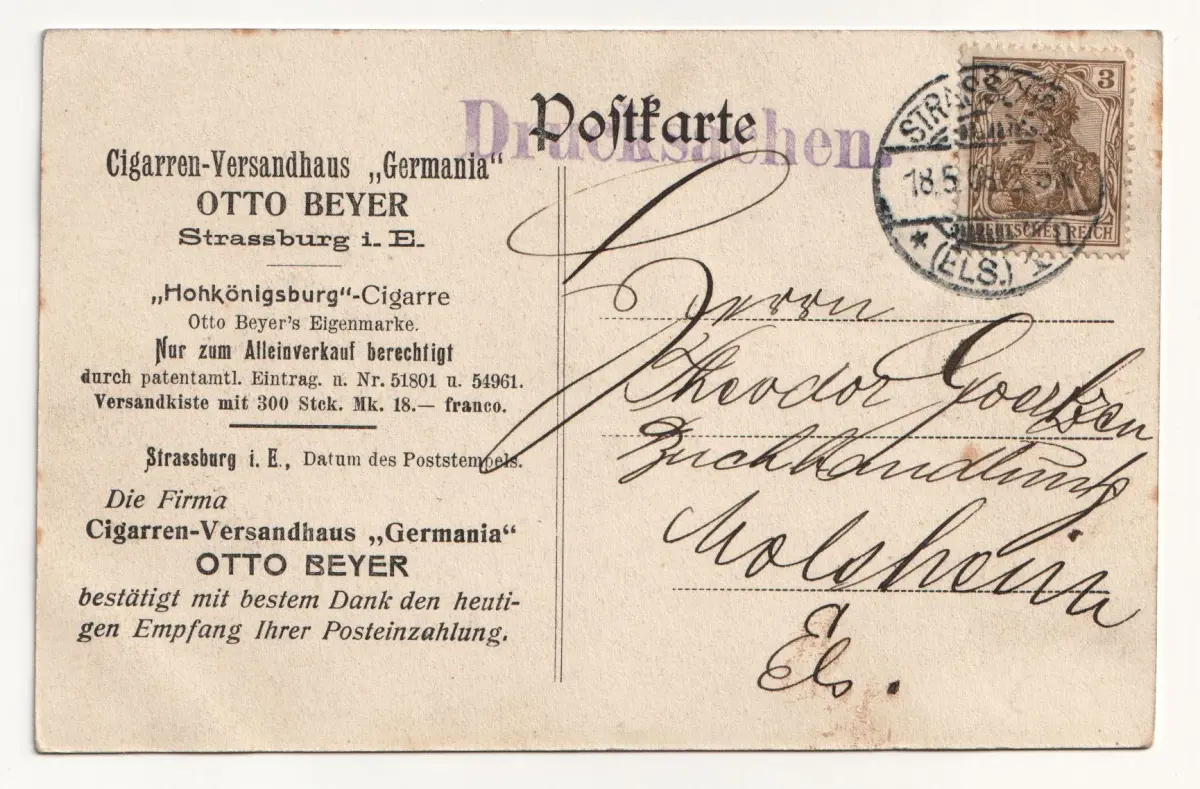 Postkarte
Drucksachen.
Cigarren-Versandhaus „Germania“
OTTO BEYER
Strassburg i. E.
„Hohkönigsburg“-Cigarre
Otto Beyer's Eigenmarke.
Nur zum Alleinverkauf berechtigt
durch patentamtl. Eintrag. n. Nr. 51801 u. 54961.
Versandkiste mit 300 Stck. Mk. 18.— franco.
Strassburg i. E., Datum des Poststempels.
Die Firma
Cigarren-Versandhaus „Germania“
OTTO BEYER
bestätigt mit bestem Dank den heuti-
gen Empfang Ihrer Posteinzahlung.
3 3
DEUTSCHES REICH
18.5.08
* (ELS.)
Herrn
Theodor Goertzen
Buchhandlung
Molsheim
Els.